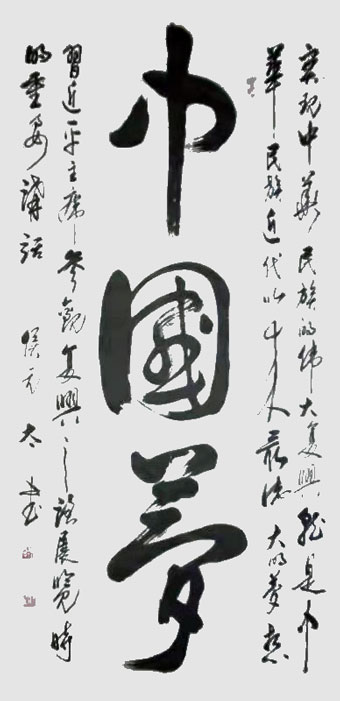 實現中華民族的偉大复興就是中
華民族近代以來最偉大的夢想
中國夢
習近平主席參觀复興之路展覽時
的重要講話 侯元太書